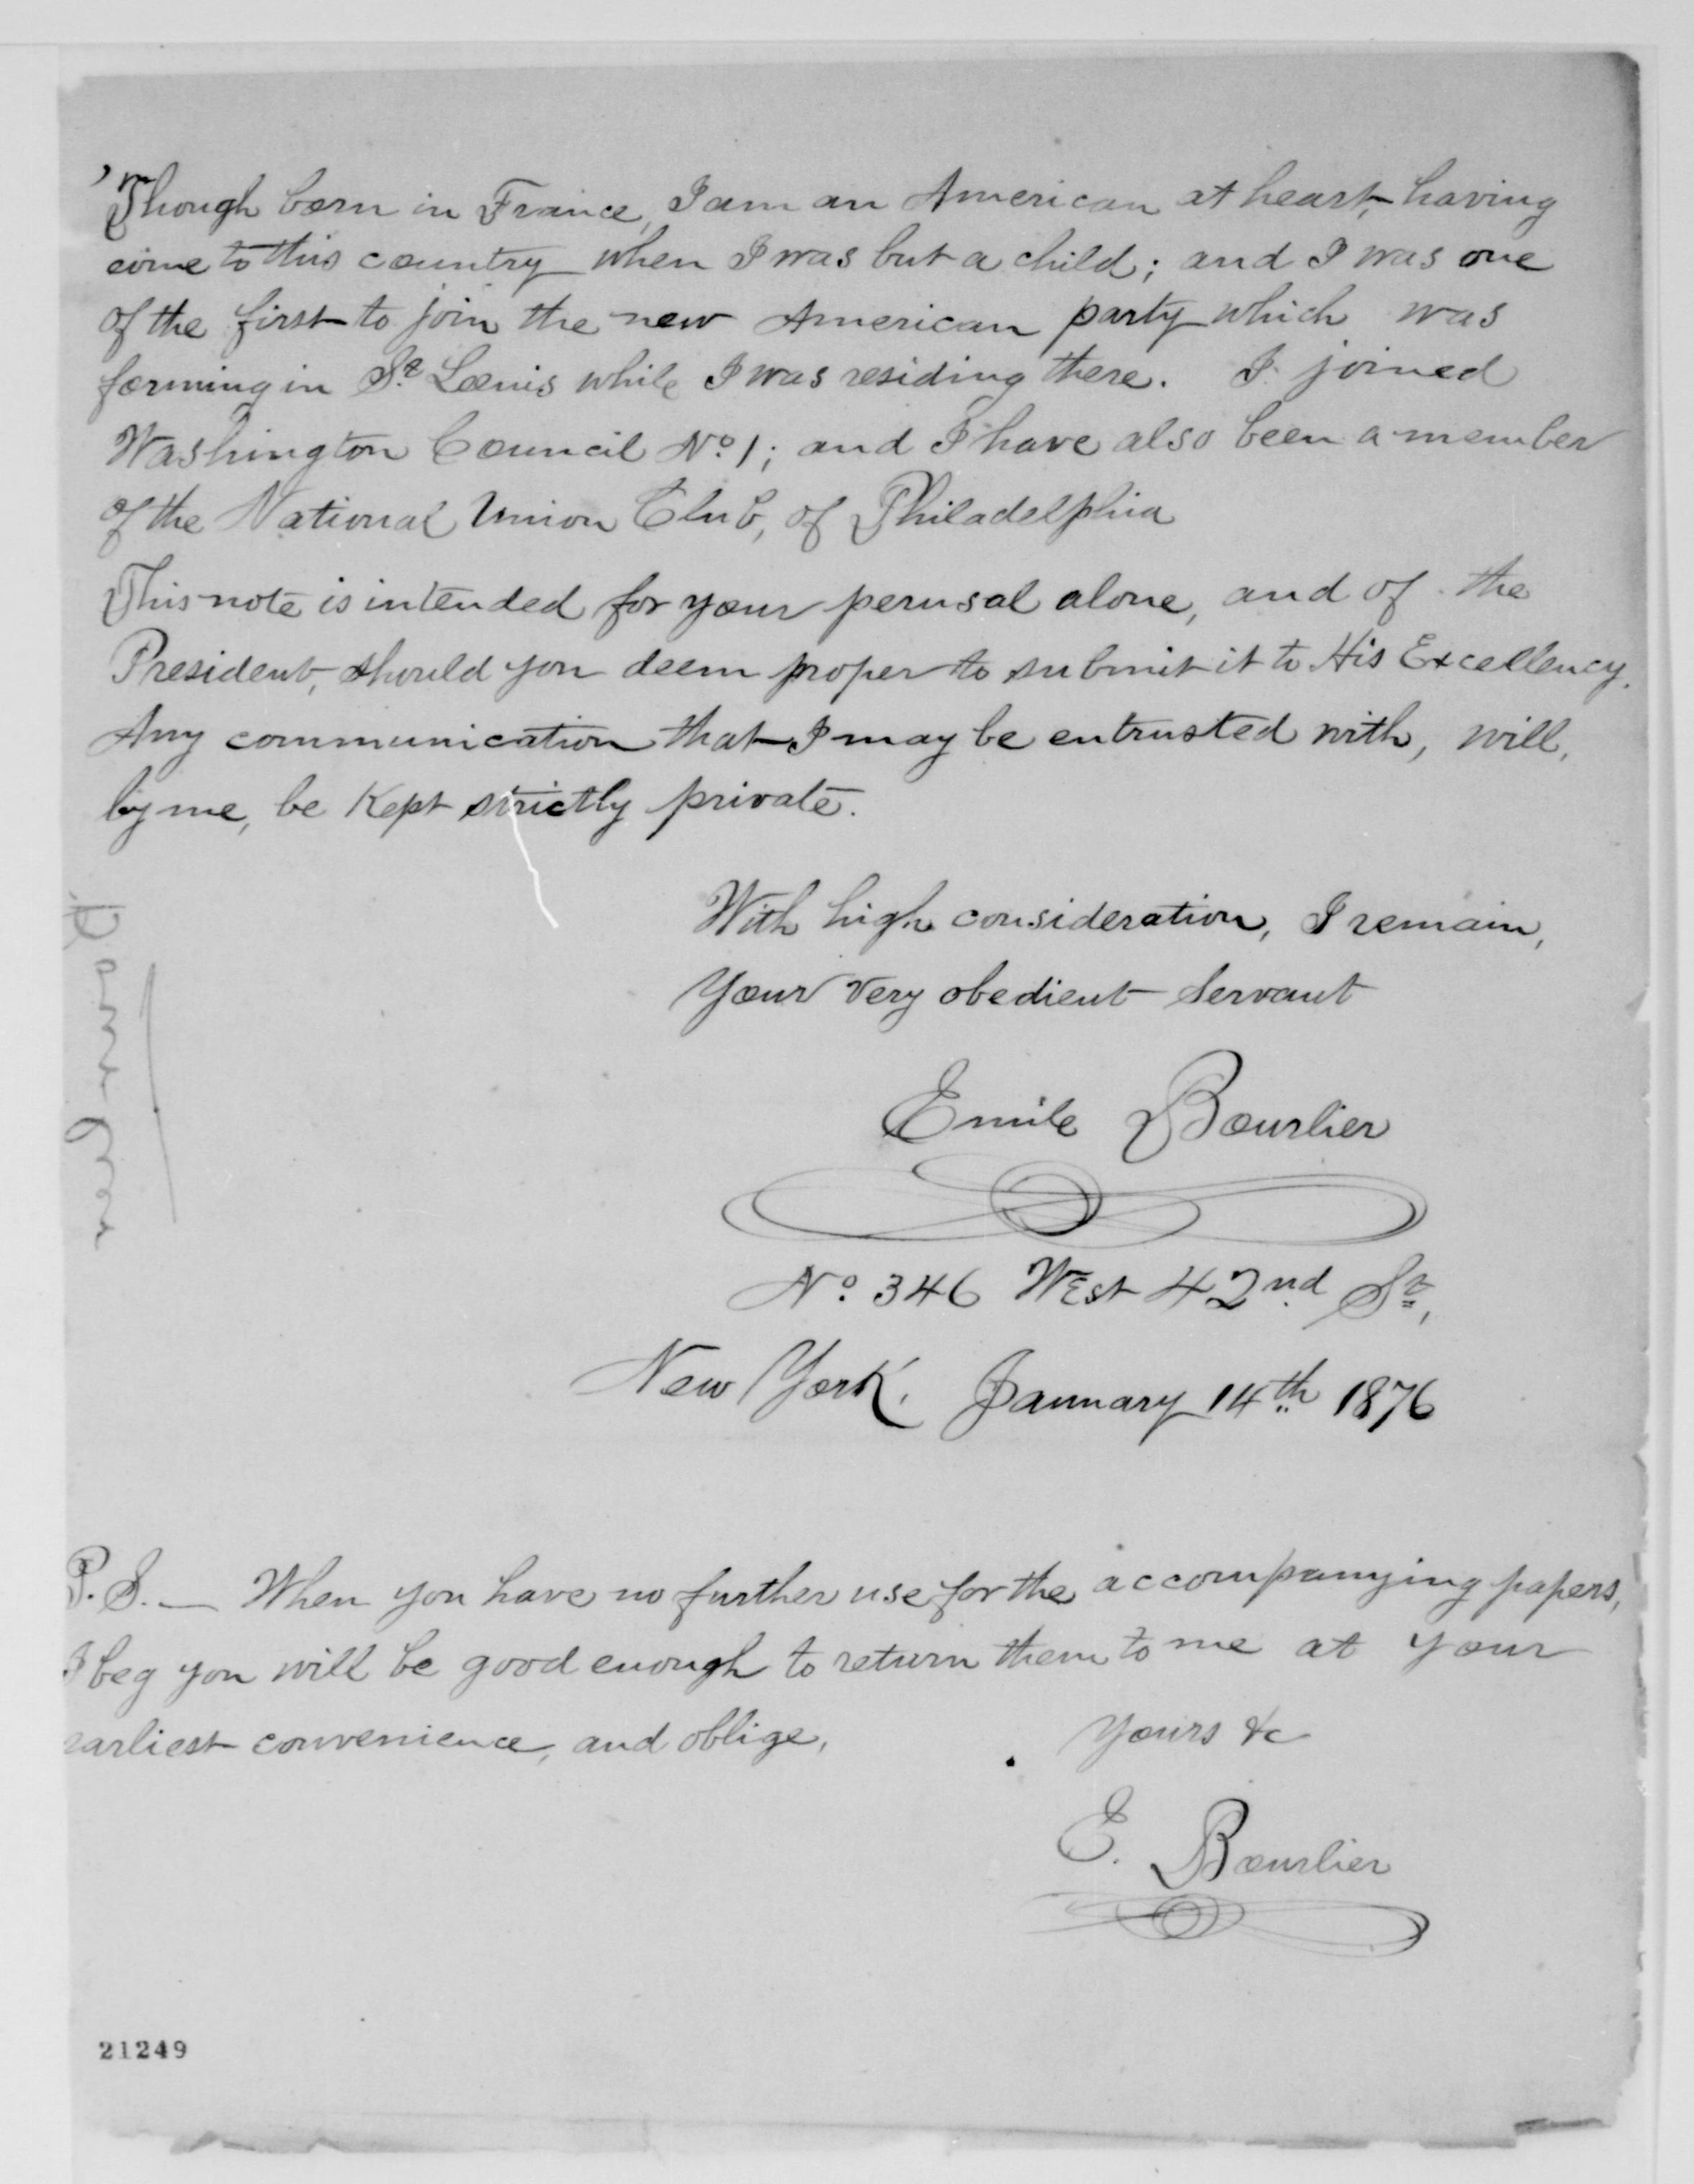 Though born in France, I am an American at heart, having
come to this country when I was but a child; and I was one
of the first to join the new American party which was
forming in St. Louis while I was residing there. I joined
Washington Council No. 1; and I have also been a member
of the National Union Club, of Philadelphia
This note is intended for your perusal alone, and of the
President, should you deem proper to submit it to His Excellency.
Any communication that I may be entrusted with, will,
by me, be Kept strictly private.
With high consideration, I remain,
Your very obedient Servant
Emile Bourlier
No. 346 West 42nd St.,
New York, January 14th 1876
P.S. — When you have no further use for the accompanying papers,
I beg you will be good enough to return them to me at your
earliest convenience, and oblige,
Yours &c
E. Bourlier
21249